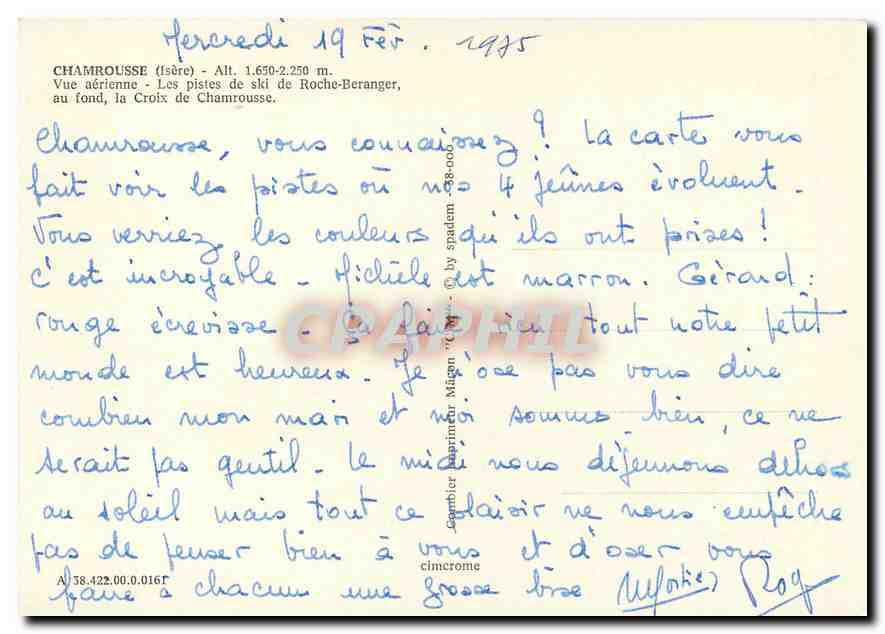 Mercredi 19 Fév. 1975
CHAMROUSSE (Isère) - Alt. 1.650-2.250 m.
Vue aérienne - Les pistes de ski de Roche-Beranger,
au fond, la Croix de Chamrousse.
Chamrousse, vous connaissez ? La carte vous
fait voir les pistes où nos 4 jeûnes évoluent.
Vous verriez les couleurs qu'ils ont prises !
C'est incroyable - Michèle est marron. Gérard :
rouge écrevisse - Ça fait rien tout notre petit
monde est heureux. Je n'ose pas vous dire
combien mon mari et moi sommes bien, ce ne
serait pas gentil - Le midi nous déjeunons dehors
au soleil mais tout ce plaisir ne nous empêche
pas de penser bien à vous et d'oser vous
faire à chacun une grosse bise
Combier Imprimeur Mâcon "CIM" - © by spadem - 38-000
cimcrome
A 38.422.00.0.0161
CPAPHIL